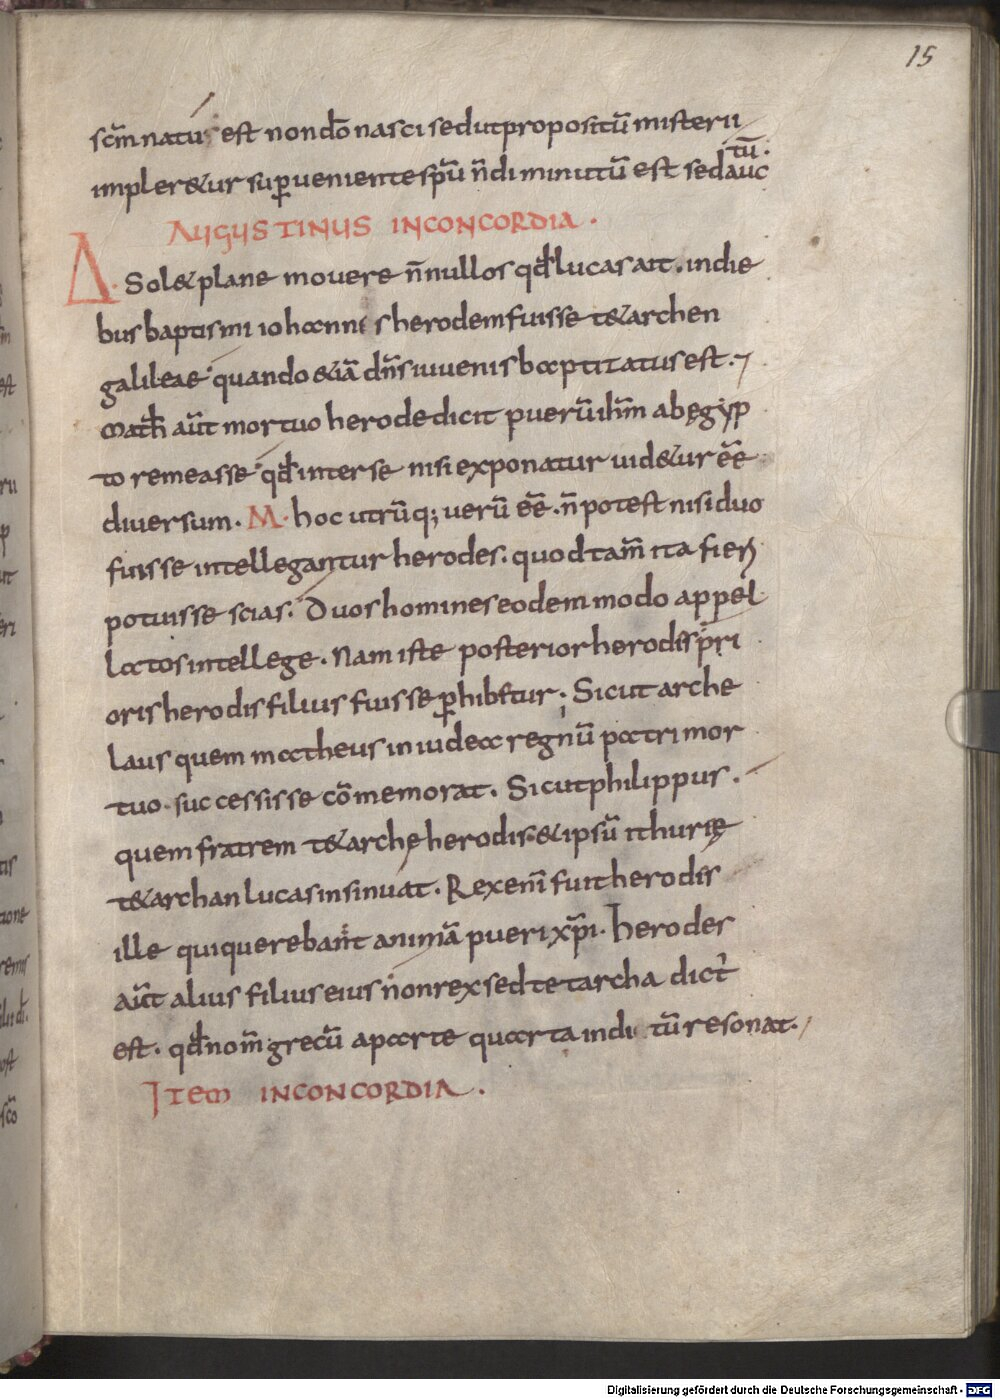 15
scm̄ natus est non dō nasci sed ut propositū misterii
impler&ur supueniente spū n̄ diminutū est sed auc
tū.
AUGUSTINUS IN CONCORDIA.
Δ. Sol& plane movere n̄nullos qđ lucas ait. in die
bus baptismi iohannis herodem fuisse t&rarchen
galileae quando &iā dn̄s iuvenis baptizatus est. 7
Math aūt mortuo herode dicit puerū ihm̄ ab ęgyp
to remeasse qđ inter se nisi exponatur uid&ur eē
diversum. M. hoc utrūq; uerū eē. n̄ potest nisi duo
fuisse intellegantur herodes. quod tam̄ ita fieri
potuisse scias. Duos homines eodem modo appel
latos intellege. Nam iste posterior herodis pri
oris herodis filius fuisse phibetur; Sicut arche
laus quem matheus in iudea regnū patri mor
tuo successisse cōmemorat. Sicut philippus.
quem fratrem t&rarchę herodis. & ipsū ithurię
t&rarchan lucas insinuat. Rex enī fuit herodis
ille qui querebant animā pueri xp̄i. herodes
aūt alius filius eius non rex sed tetarcha dict
est. qđ nom̄ grecū a parte quarta inditū resonat.
ITEM IN CONCORDIA.
Digitalisierung gefördert durch die Deutsche Forschungsgemeinschaft - DFG